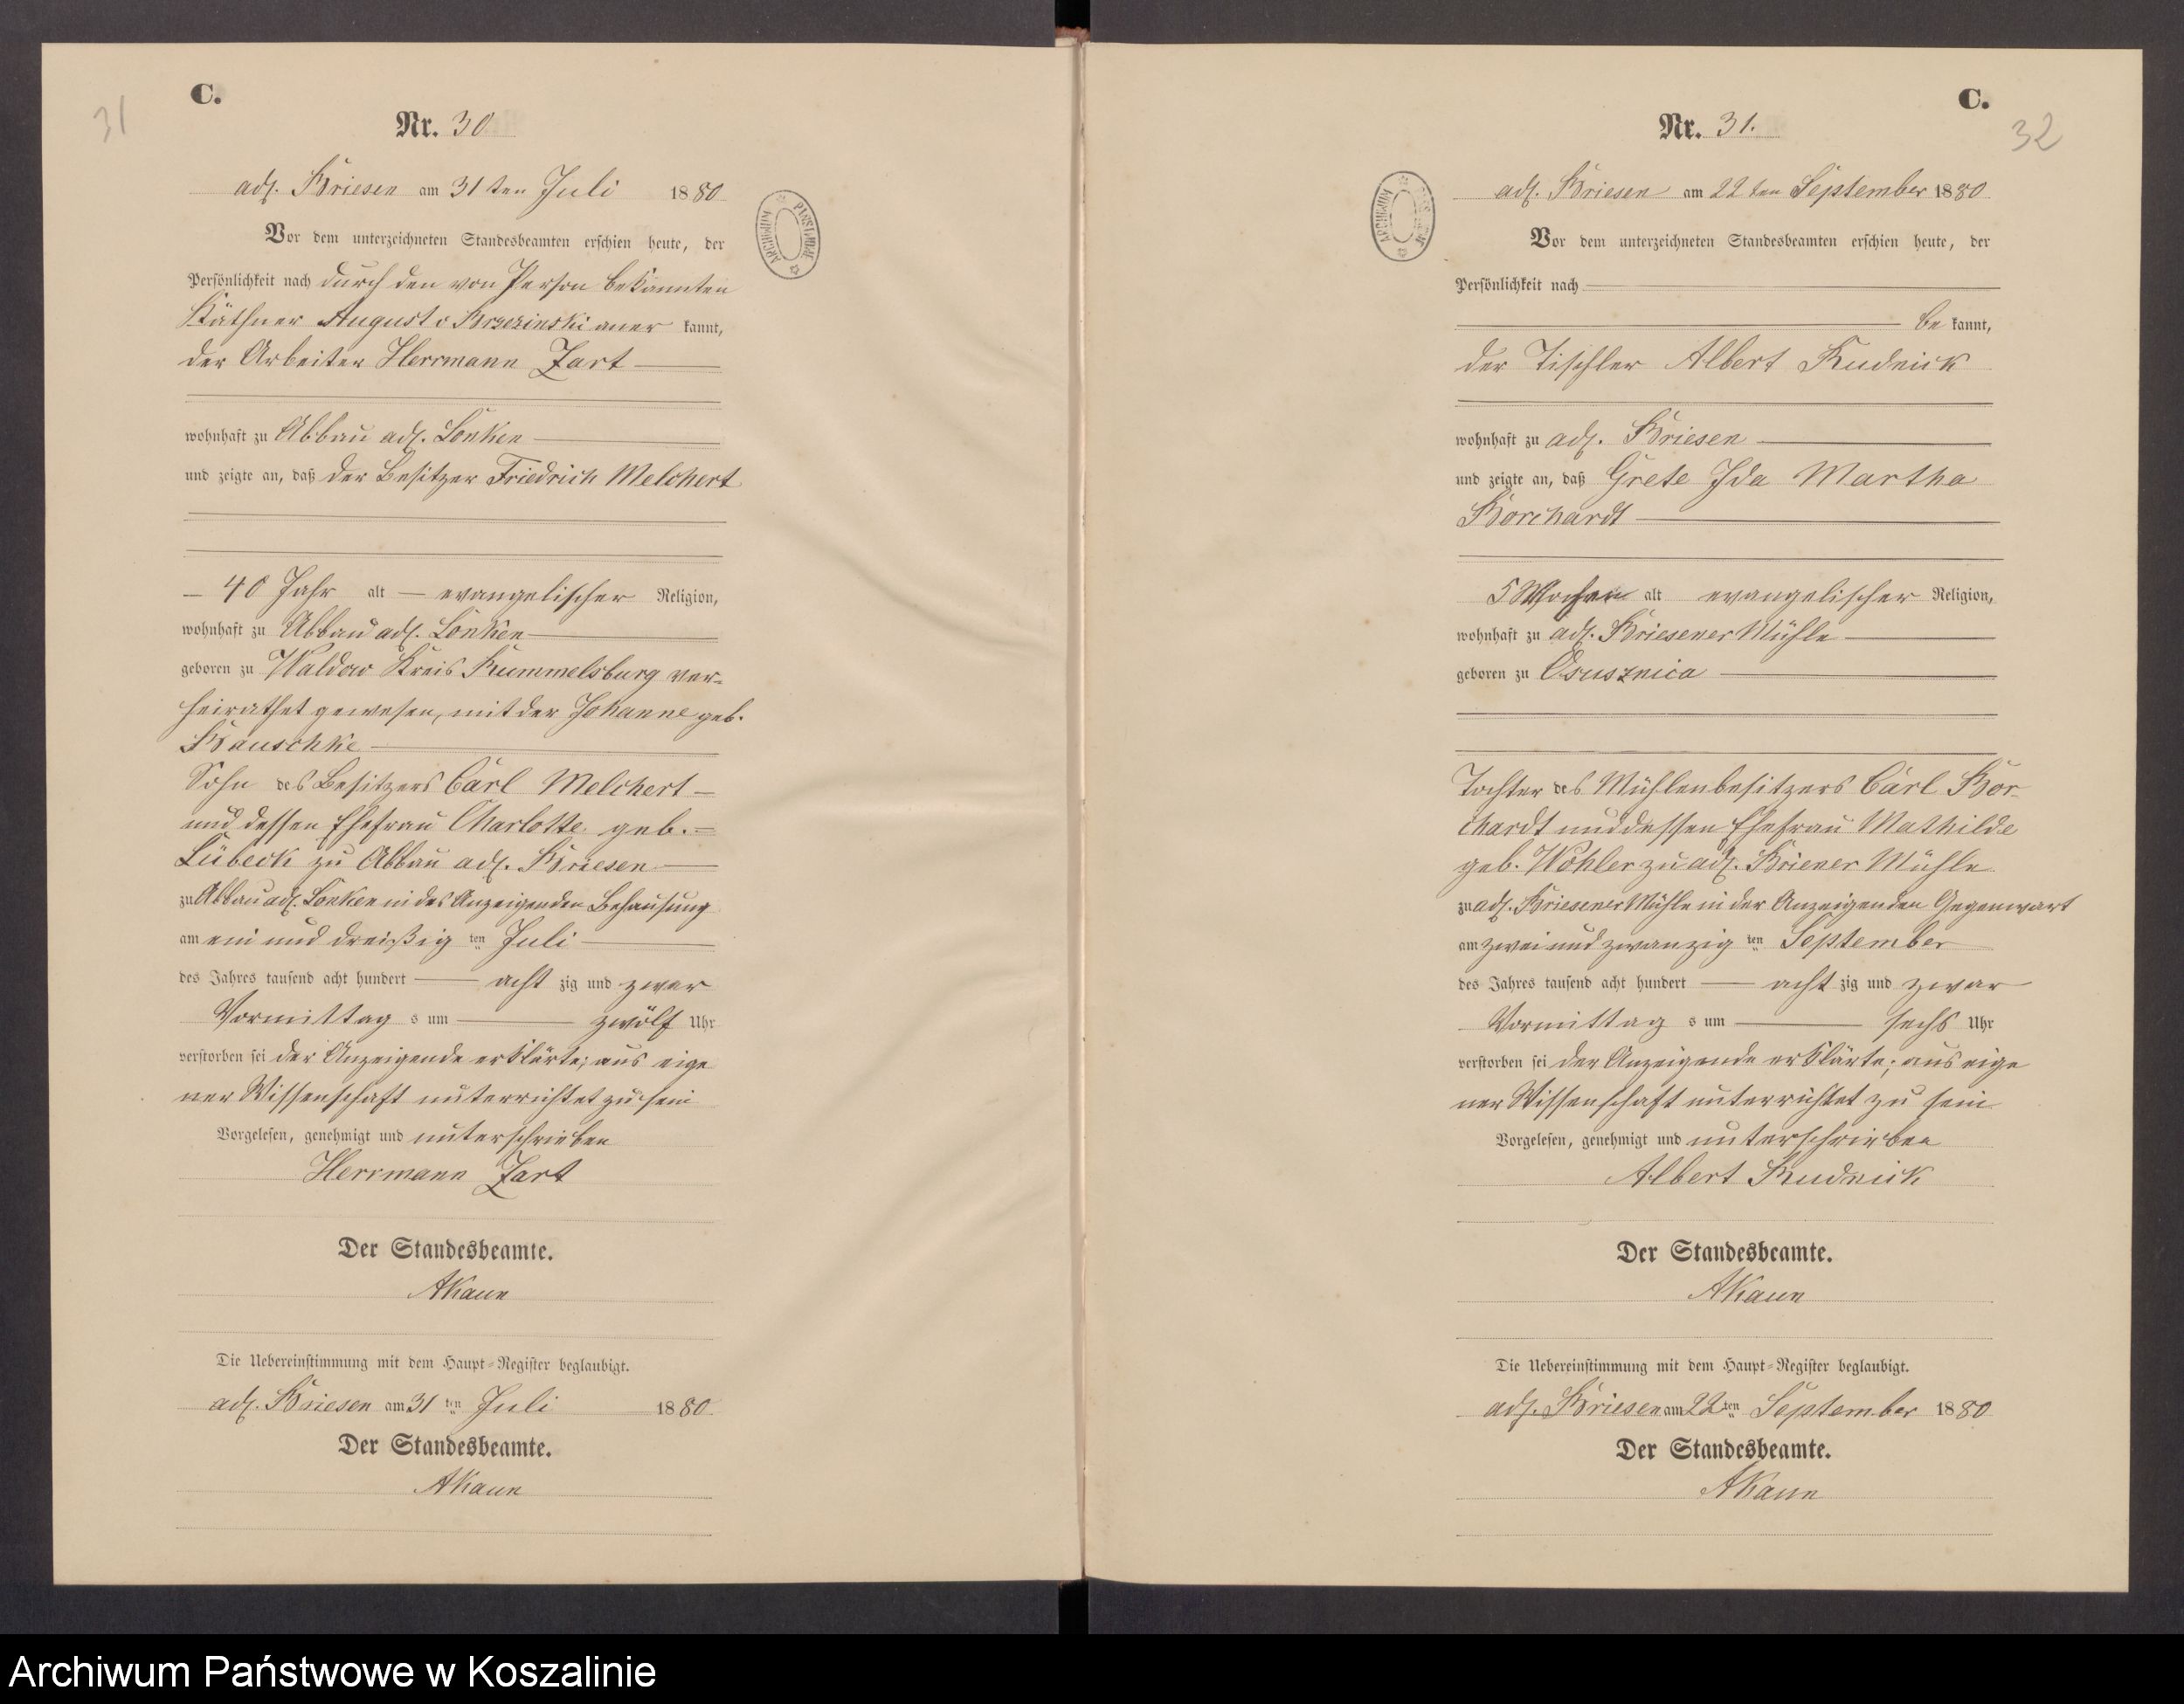 31
C.
Nr. 30
adl. Briesen am 31ten Juli 1880
Vor dem unterzeichneten Standesbeamten erschien heute, der
Persönlichkeit nach durch den von Person bekannten
Käthner August v Brzezinski aner kannt,
der Arbeiter Herrmann Zart
wohnhaft zu Abbau adl. Lonken
und zeigte an, daß der Besitzer Friedrich Melchert
40 Jahr alt evangelischer Religion,
wohnhaft zu Abbau adl. Lonken
geboren zu Waldow Kreis Rummelsburg ver=
heirathet gewesen, mit der Johanne geb.
Bauschke
Sohn des Besitzers Carl Melchert
und dessen Ehefrau Charlotte geb.
Lübeck zu Abbau adl. Briesen
zu Abbau adl. Lonken in des Anzeigenden Behausung
am ein und dreißig ten Juli
des Jahres tausend acht hundert acht zig und zwar
Vormittag s um zwölf Uhr
verstorben sei der Anzeigende erklärte; aus eige
ner Wissenschaft unterrichtet zu sein
Vorgelesen, genehmigt und unterschrieben
Herrmann Zart
Der Standesbeamte.
AKaun
Die Uebereinstimmung mit dem Haupt=Register beglaubigt.
adl. Briesen am 31 ten Juli 1880
Der Standesbeamte.
AKaun
C.
32
Nr. 31.
ARCHIWUM
adl. Briesen am 22ten September 1880
Vor dem unterzeichneten Standesbeamten erschien heute, der
Persönlichkeit nach
be kannt,
der Tischler Albert Rudnick
wohnhaft zu adl. Briesen
und zeigte an, daß Grete Ida Martha
Borchardt
5 Wochen alt evangelischer Religion,
wohnhaft zu adl. Briesener Mühle
geboren zu Osusznica
Tochter des Mühlenbesitzers Carl Bor
chardt und dessen Ehefrau Mathilde
geb. Wohler zu adl. Briener Mühle
zu adl. Briesener Mühle in der Anzeigenden Gegenwart
am zwei und zwanzig ten September
des Jahres tausend acht hundert acht zig und zwar
Vormittag s um sechs Uhr
verstorben sei der Anzeigende erklärte; aus eige
ner Wissenschaft unterrichtet zu sein
Vorgelesen, genehmigt und unterschrieben
Albert Rudnick
Der Standesbeamte.
AKaun
Die Uebereinstimmung mit dem Haupt=Register beglaubigt.
adl. Briesen am 22 ten September 1880
Der Standesbeamte.
AKaun
Archiwum Państwowe w Koszalinie